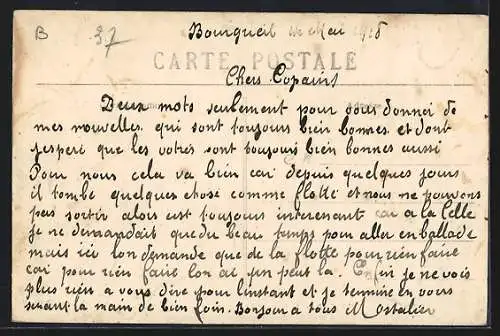 B 37 Bourgueil le Mai 1918
CARTE POSTALE
Chers Copains
Deux mots seulement pour vous donner de
mes nouvelles qui sont toujours bien bonnes et dont
j'esperé que les votres sont toujours bien bonnes aussi
Pour nous cela va bien car depuis quelques jours
il tombe quelques chose comme flotte et nous ne pouvons
pas sortir alors est toujours interenant car a la Celle
je ne demandait que du beau temps pour aller en ballade
mais ici lon demande que de la flotte pour rien faire
car pour rien faire lon ai un peut la. Enfin je ne vois
plus rien a vous dire pour linstant et je termine en vous
serrant la main de bien loin. Bonjour a tous